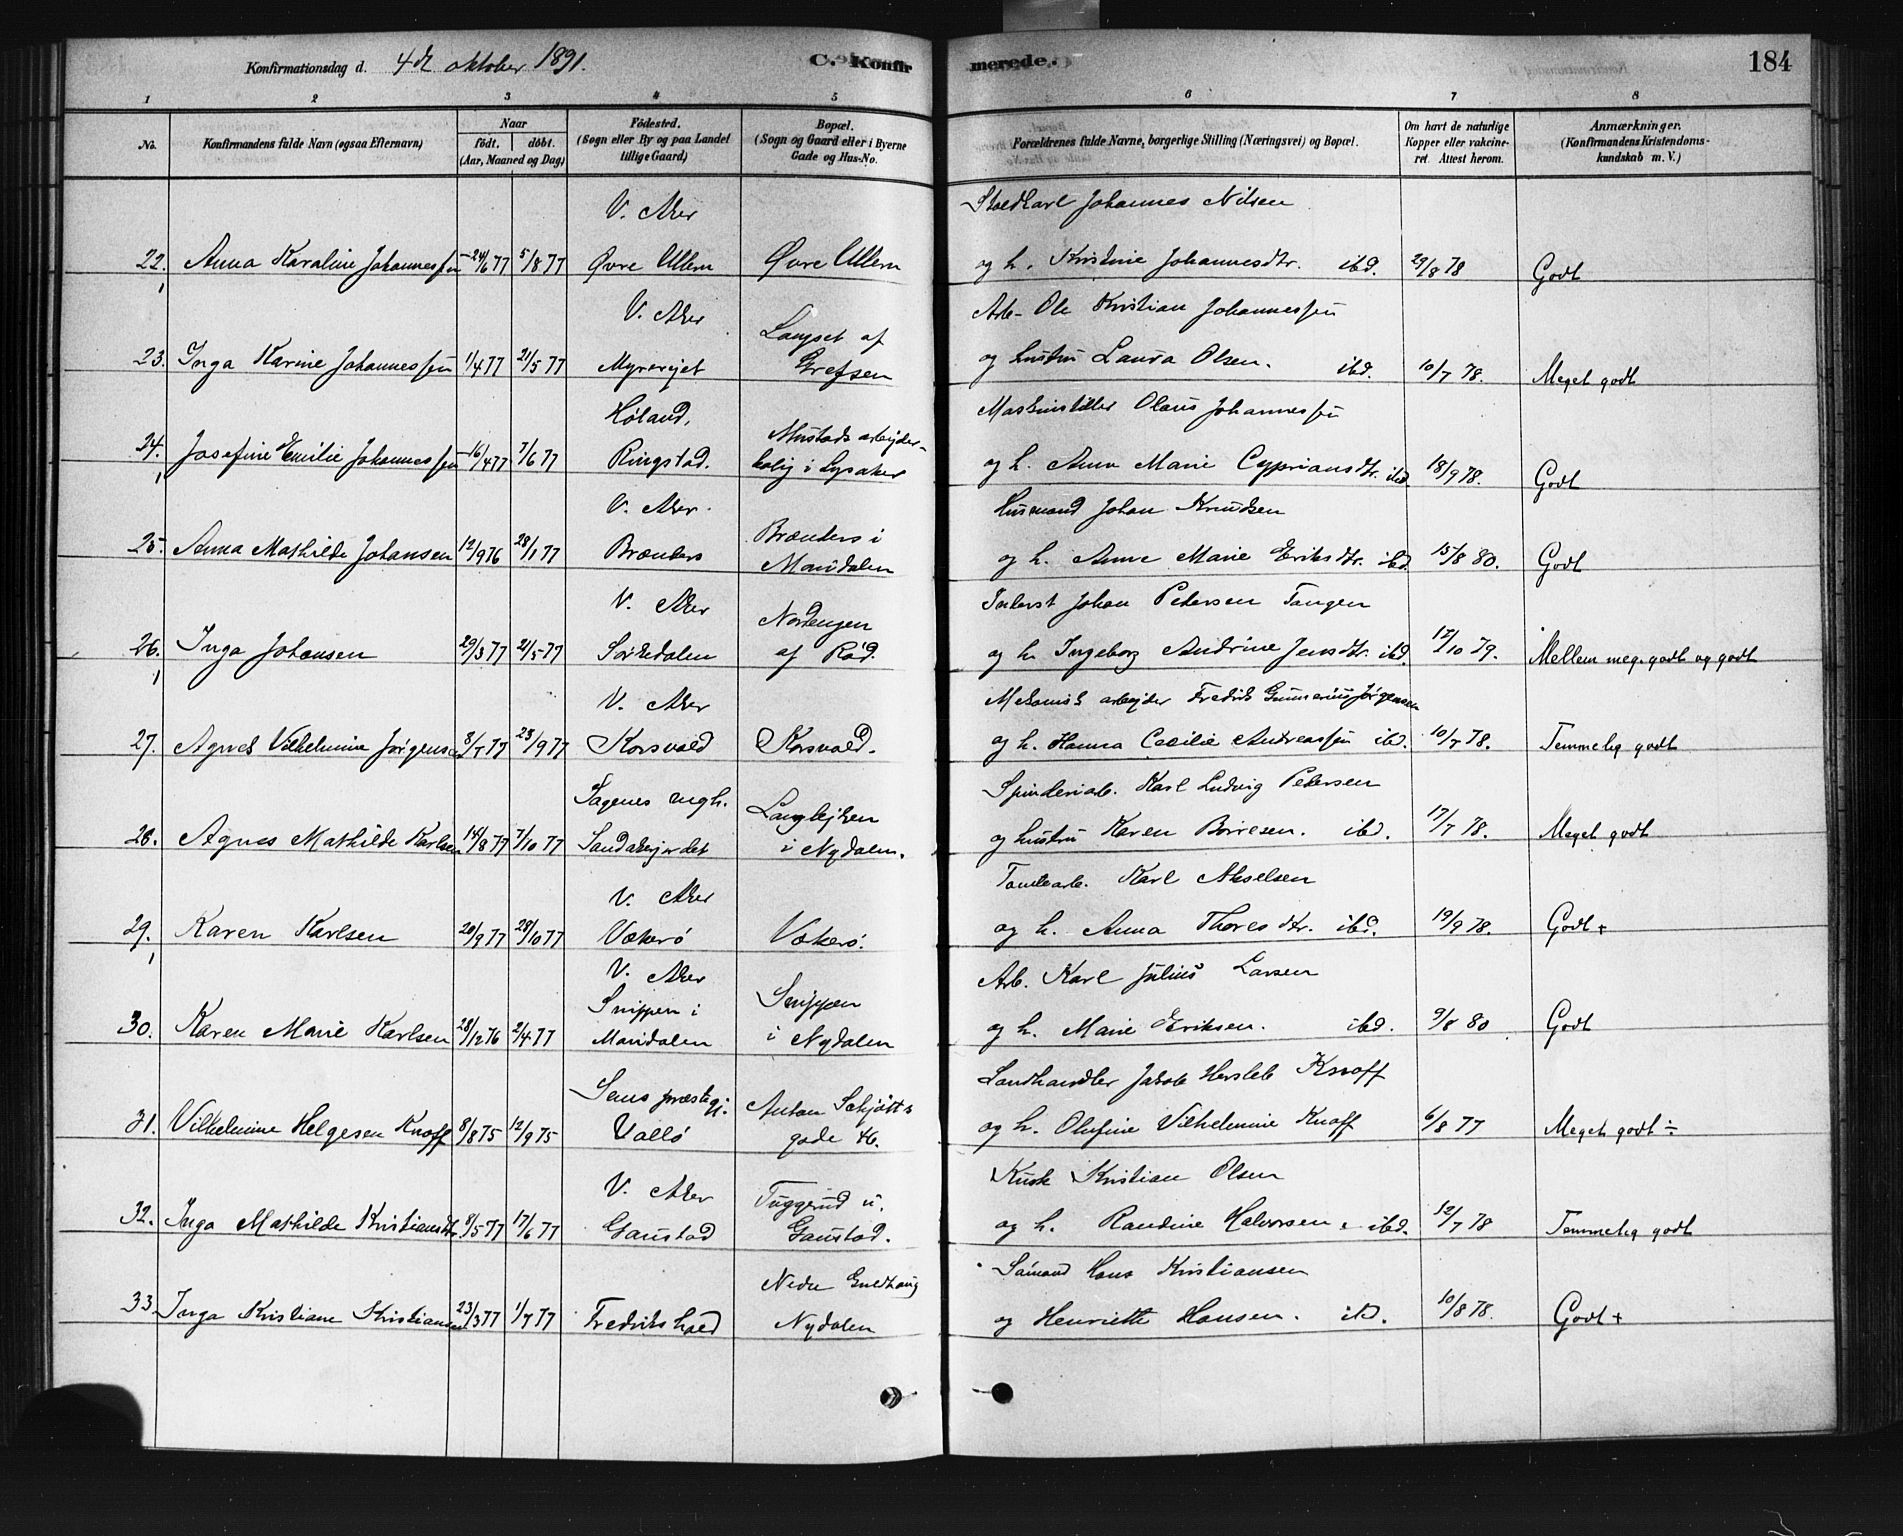 Konfirmationsdag d. 4de oktober 1891.
C. Konfirmerede.
184
1 2 3 4 5 6 7 8
No.
Konfirmandens fulde Navn (ogsaa Efternavn)
Naar
født. døbt.
(Aar, Maaned og Dag)
Fødested.
(Sogn eller By og paa Landet
tillige Gaard)
Bopæl.
(Sogn og Gaard eller i Byerne
Gade og Hus-No.
Forældrenes fulde Navne, borgerlige Stilling (Næringsvei) og Bopæl.
Om havt de naturlige
Kopper eller vakcine-
ret. Attest herom.
Anmærkninger.
(Konfirmandens Kristendoms-
kundskab m. V.)
V. Aker Johannes Nilsen
22. Anna Karaline Johannessen 24/6 77 5/8 77 Øvre Ullern Øvre Ullern og h. Kristine Johannesdtr. ibd. 29/8 78 Godt
V. Aker Langset af Arb. Ole Kristian Johannessen
23. Inga Karine Johannessen 1/4 77 21/5 77 Myrerejet Grefsen og hustru Laura Olsen. ibd. 10/7 78. Meget godt
Høland, Mustads arbejder- Olaus Johannessen
24. Josefine Emilie Johannessen 16/4 77 7/6 77 Ringstad. bolig i Lysaker og h. Anne Marie Cypriansdtr. ibd. 18/9 78. Godt
V. Aker. Brænders i Husmand Johan Knudsen
25. Anna Mathilde Johansen 12/9 76 28/1 77 Brænders Maridalen og h. Anne Marie Eriksdtr. ibd. 15/8 80. Godt
V. Aker Nordengen Inderst Johan Petersen Tangen
26. Inga Johansen 29/3 77 21/5 77 Sørkedalen af Rød. og h. Ingeborg Andrine Jensdtr. ibd. 12/10 79. Mellem meg. godt og godt
V. Aker Mekanisk arbejder Fredrik Gunnerius Jørgensen
27. Agnes Vilhelmine Jørgensen 8/7 77 23/9 77 Korsvold Korsvold. og h. Hanna Cecilie Andreassen ibd. 10/7 78. Temmelig godt
Sagenes mgh. Langlejken Spinderiarb. Karl Ludvig Petersen
28. Agnes Mathilde Karlsen 14/8 77 7/10 77 Sandakerjordet i Nydalen. og hustru Karen Börresen. ibd. 17/7 78. Meget godt
V. Aker Tomtearb. Karl Akselsen
29. Karen Karlsen 20/9 77 28/10 77 Vækerø Vækerø. og h. Anna Thoresdtr. ibd. 19/9 78. Godt +
V. Aker Snippen i Snippen Arb. Karl Julius Larsen
30. Karen Marie Karlsen 28/12 76 2/4 77 Maridalen i Nydalen og h. Marie Eriksen. ibd. 9/8 80 Godt
Sems præstegj: Anton Schjøtts Landhandler Jakob Hersleb Knoff
31. Vilhelmine Helgesen Knoff 8/8 75 12/9 75 Vallø gade 46. og h. Olufine Vilhelmine Knoff 6/8 77 Meget godt ÷
V. Aker Tuggerud u. Kusk Kristian Olsen
32. Inga Mathilde Kristiansdtr. 8/5 77 17/6 77 Gaustad Gaustad. og h. Randine Halvorsen. ibd. 12/7 78 Temmelig godt
Nedre Guldhaug Sømand Hans Kristiansen
33. Inga Kristiane Kristiansen 23/3 77 1/7 77 Fredrikshald Nydalen og Henriette Hansen. ibd. 10/8 78. Godt +